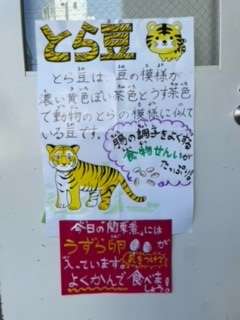 とら豆
とら豆は、豆の模様が
濃い黄色ぽい茶色とうす茶色
で動物のとらの模様に似て
いる豆です。
腸の調子をよくする
食物せんいが
たっぷり!!
今日の“関東煮”には
うずら卵が
入っています。
よくかんで食べま
しょう。